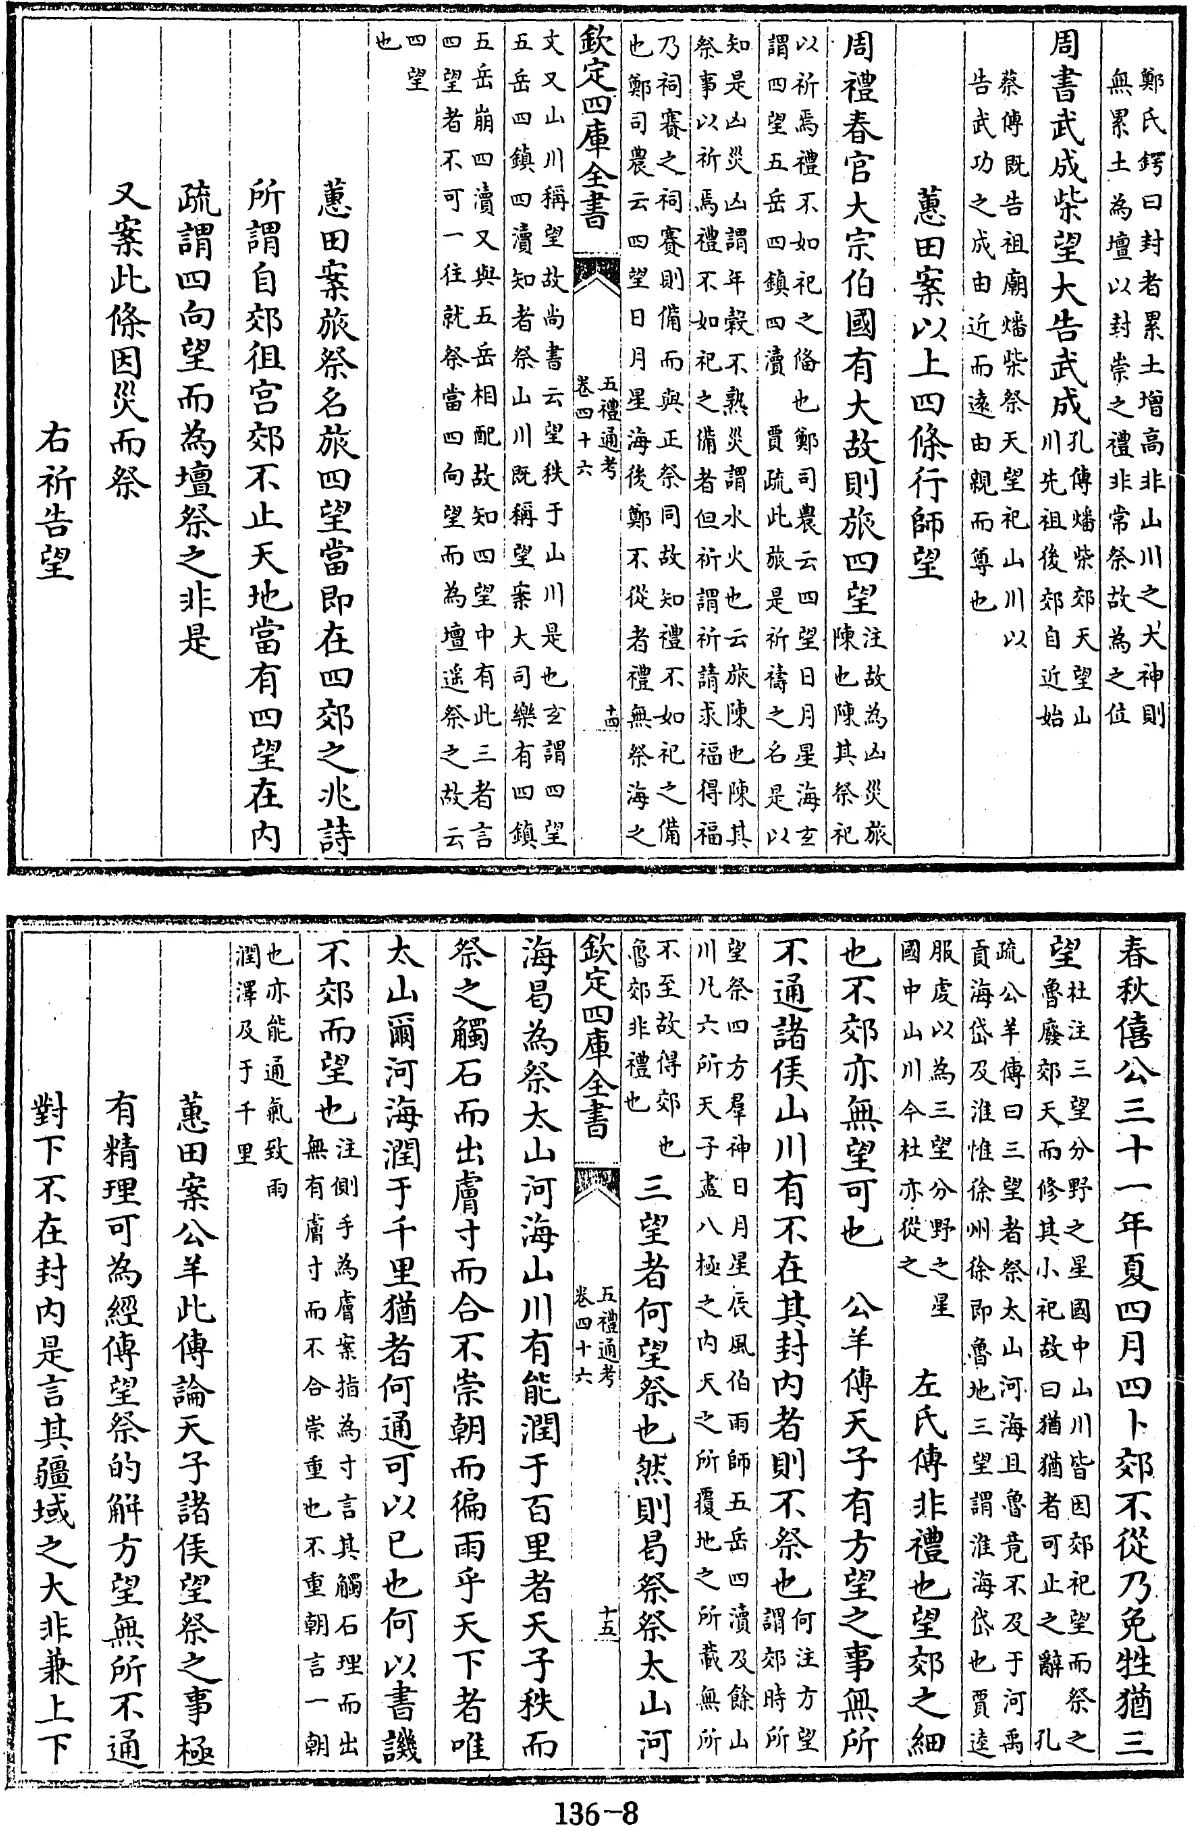 鄭氏鍔曰封者累土增高非山川之大神則
無累土為壇以封崇之禮非常祭故為之位
周書武成柴望大告武成孔傳燔柴郊天望山
川先祖後郊自近始
蔡傳既告祖廟燔柴祭天望祀山川以
告武功之成由近而遠由親而尊也
蕙田案以上四條行師望
周禮春官大宗伯國有大故則旅四望注故為凶災旅
陳也陳其祭祀
以祈焉禮不如祀之偹也鄭司農云四望日月星海玄
謂四望五岳四鎮四瀆 賈疏此旅是祈禱之名是以
知是凶災凶謂年穀不熟災謂水火也云旅陳也陳其
祭事以祈焉禮不如祀之備者但祈謂祈請求福得福
乃祠賽之祠賽則備而與正祭同故知禮不如祀之備
也鄭司農云四望日月星海後鄭不從者禮無祭海之
欽定四庫全書
五禮通考
卷四十六
十四
文又山川稱望故尚書云望秩于山川是也玄謂四望
五岳四鎮四瀆知者祭山川既稱望案大司樂有四鎮
五岳崩四瀆又與五岳相配故知四望中有此三者言
四望者不可一往就祭當四向望而為壇遥祭之故云
四望
也
蕙田案旅祭名旅四望當即在四郊之兆詩
所謂自郊徂宫郊不止天地當有四望在内
疏謂四向望而為壇祭之非是
又案此條因災而祭
右祈告望
春秋僖公三十一年夏四月四卜郊不從乃免牲猶三
望杜注三望分野之星國中山川皆因郊祀望而祭之
魯廢郊天而修其小祀故曰猶猶者可止之辭 孔
疏公羊傳曰三望者祭太山河海且魯竟不及于河禹
貢海岱及淮惟徐州徐即魯地三望謂淮海岱也賈逵
服虔以為三望分野之星
國中山川今杜亦從之
左氏傳非禮也望郊之細
也不郊亦無望可也 公羊傳天子有方望之事無所
不通諸侯山川有不在其封内者則不祭也何注方望
謂郊時所
望祭四方羣神日月星辰風伯雨師五岳四瀆及餘山
川凡六所天子盡八極之内天之所覆地之所載無所
不至故得郊也
魯郊非禮也
三望者何望祭也然則曷祭祭太山河
欽定四庫全書
五禮通考
卷四十六
十五
海曷為祭太山河海山川有能潤于百里者天子秩而
祭之觸石而出膚寸而合不崇朝而徧雨乎天下者唯
太山爾河海潤于千里猶者何通可以已也何以書譏
不郊而望也注側手為膚案指為寸言其觸石理而出
無有膚寸而不合崇重也不重朝言一朝
也亦能通氣致雨
潤澤及于千里
蕙田案公羊此傳論天子諸侯望祭之事極
有精理可為經傳望祭的解方望無所不通
對下不在封内是言其疆域之大非兼上下
136-8